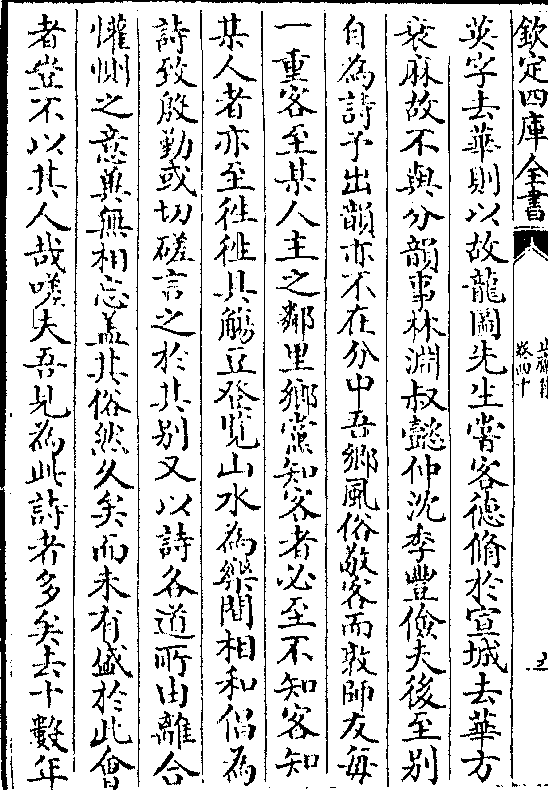 欽定四庫全書
卷四十
英字去華則以故龍圖先生嘗客德脩於宣城去華方
衰麻故不與分韻事林淵叔懿仲沈季豐儉夫後至別
自為詩予出韻亦不在分中吾鄉風俗敬客而敦師友每
一重客至某人主之鄰里鄉黨知客者必至不知客知
某人者亦至徃徃具觴豆登覽山水為樂間相和倡為
詩致殷勤或切磋言之於其別又以詩各道所由離合
懽惻之意與無相忘蓋其俗然久矣而未有盛於此會
者豈不以其人哉嗟夫吾見為此詩者多矣去十數年